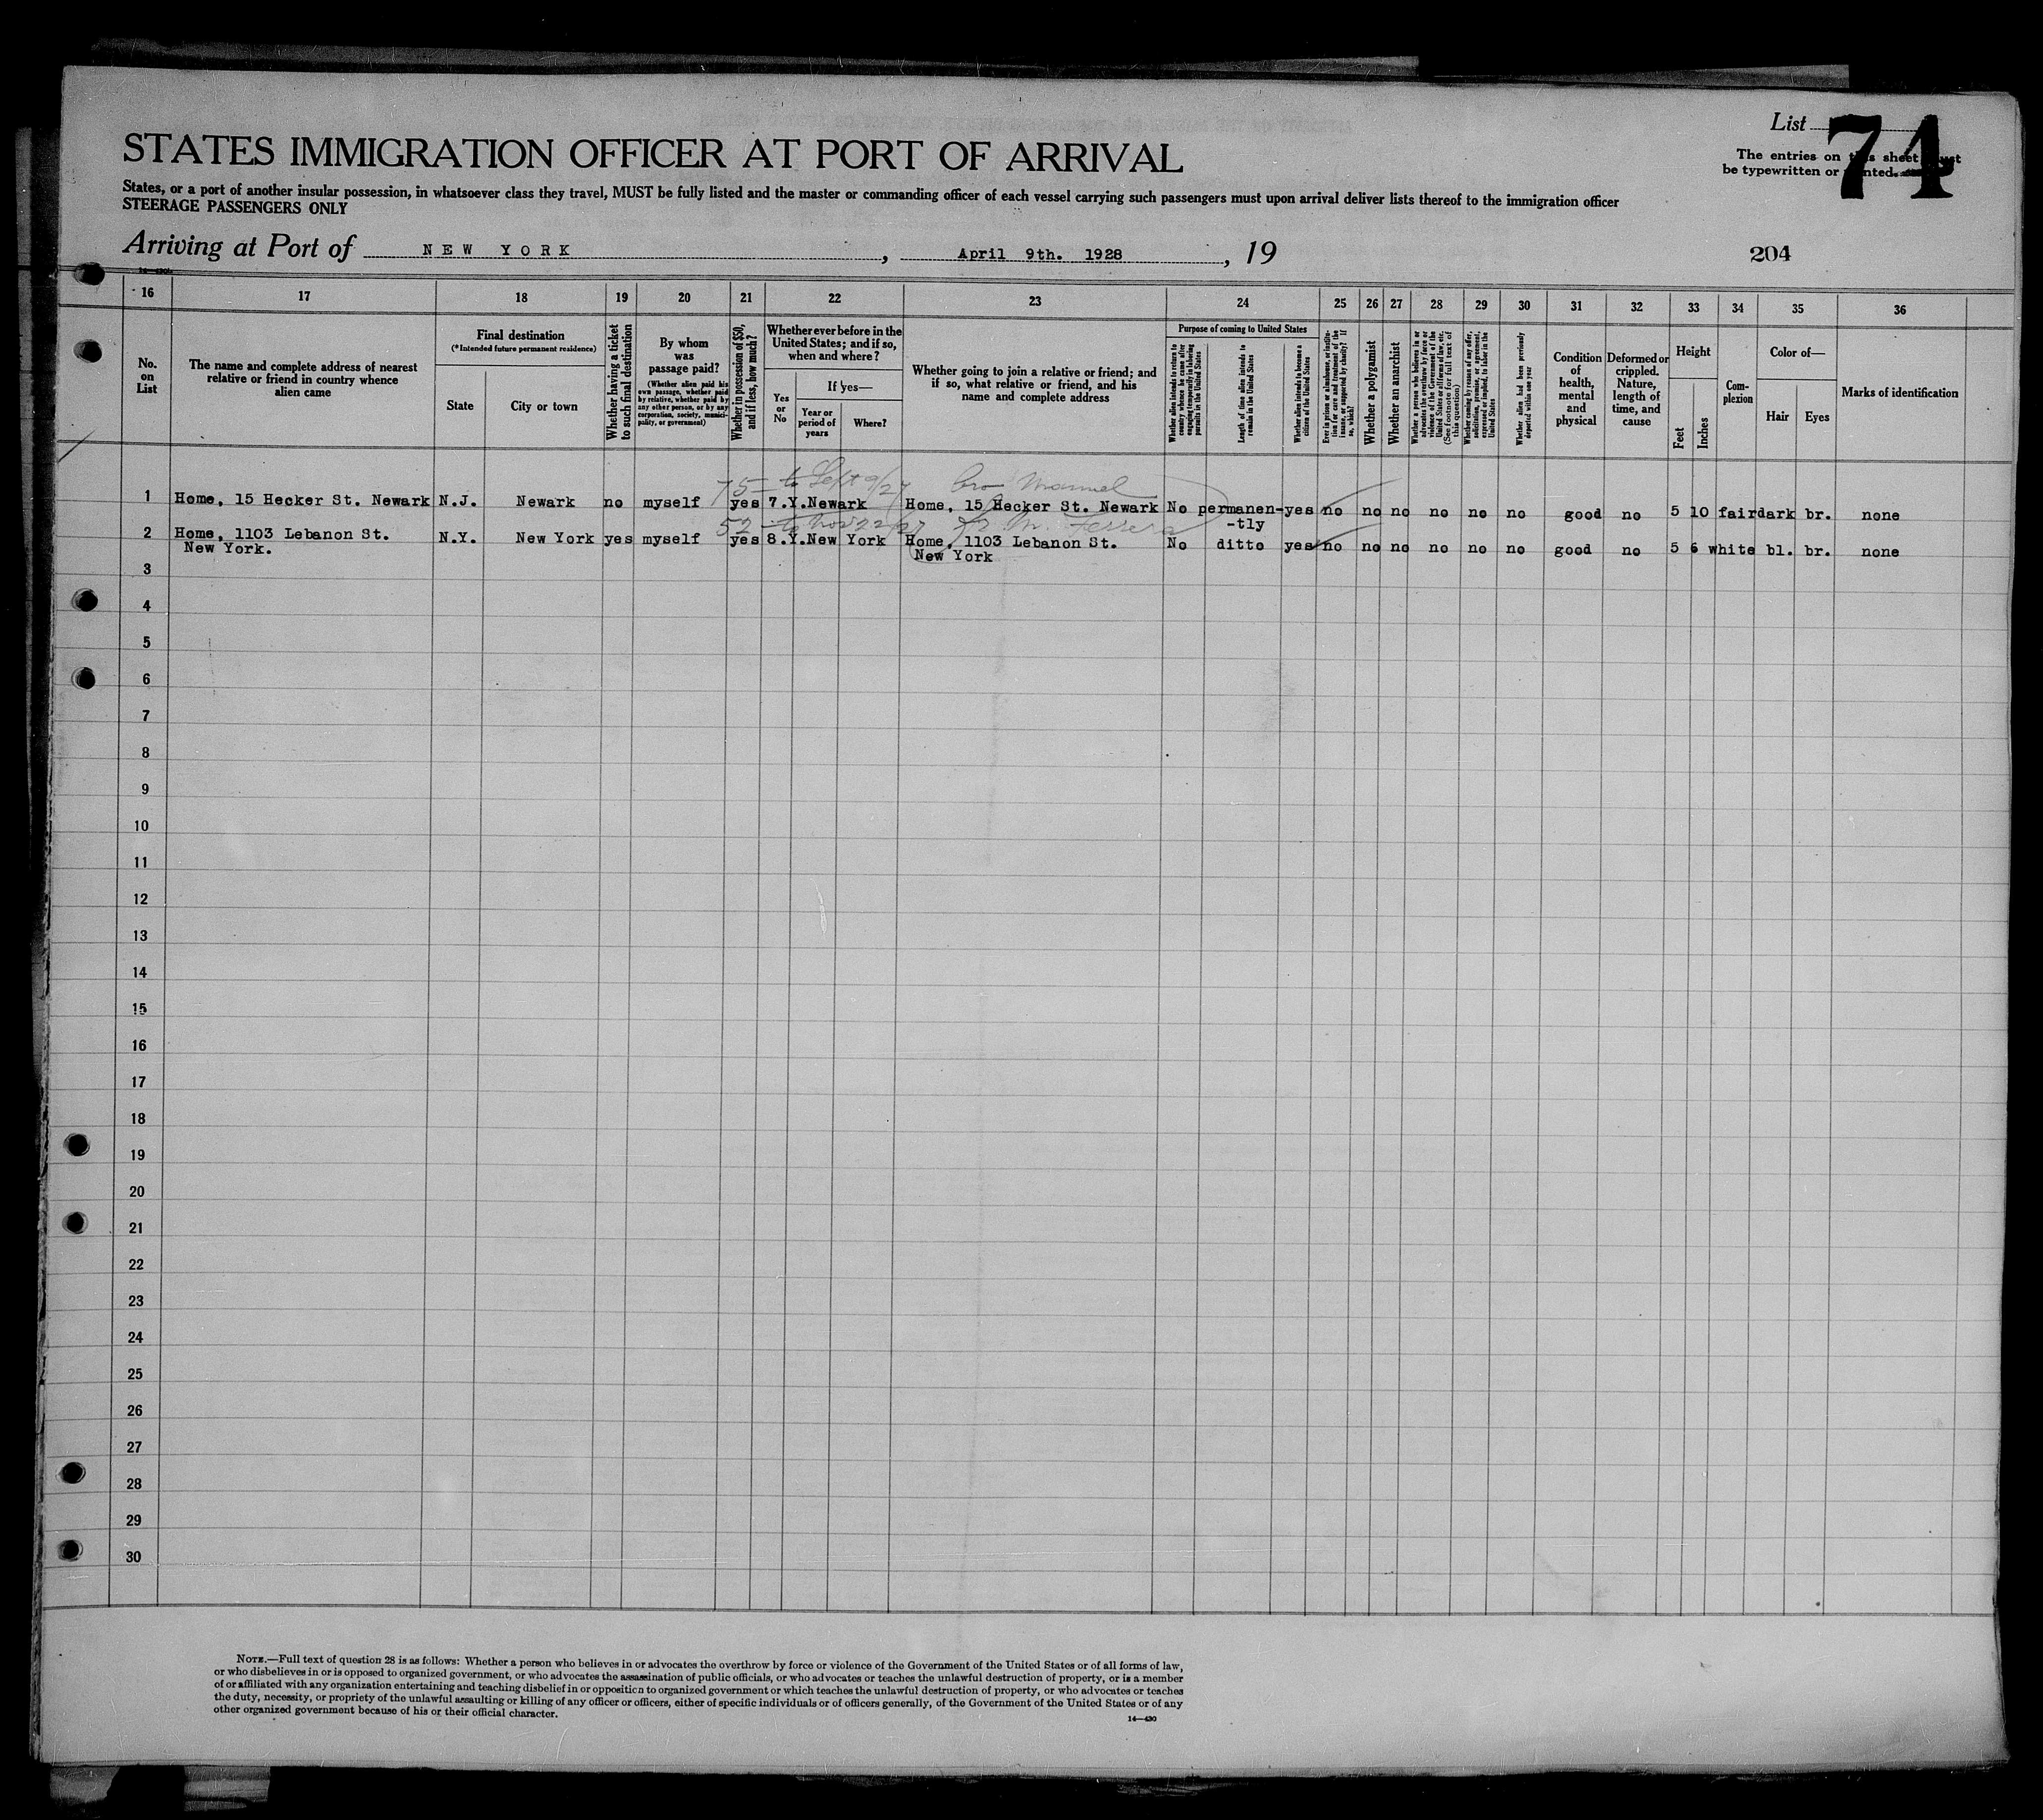 List 74
The entries on this sheet must
be typewritten or printed.
STATES IMMIGRATION OFFICER AT PORT OF ARRIVAL
States, or a port of another insular possession, in whatsoever class they travel, MUST be fully listed and the master or commanding officer of each vessel carrying such passengers must upon arrival deliver lists thereof to the immigration officer
STEERAGE PASSENGERS ONLY
Arriving at Port of NEW YORK, April 9th. 1928, 19
204
16 17 18 19 20 21 22 23 24 25 26 27 28 29 30 31 32 33 34 35 36
No. on List
The name and complete address of nearest relative or friend in country whence alien came
Final destination
(*Intended future permanent residence)
State
City or town
Whether having a ticket to such final destination
By whom was passage paid?
(Whether alien paid his own passage, whether paid by relative, whether paid by any other person, or by any corporation, society, municipality, or government)
Whether in possession of $50, and if less, how much?
Whether ever before in the United States; and if so, when and where?
Yes or No
If yes—
Year or period of years
Where?
Whether going to join a relative or friend; and if so, what relative or friend, and his name and complete address
Purpose of coming to United States
Whether alien intends to return to country whence he came after engaging temporarily in laboring pursuits in the United States
Length of time alien intends to remain in the United States
Whether alien intends to become a citizen of the United States
Ever in prison or almshouse, or institution for care and treatment of the insane, or supported by charity? If so, which?
Whether a polygamist
Whether an anarchist
Whether a person who believes in or advocates the overthrow by force or violence of the Government of the United States or all forms of law, etc. (See footnote for full text of this question)
Whether coming by reason of any offer, solicitation, promise, or agreement, expressed or implied, to labor in the United States
Whether alien had been previously deported within one year
Condition of health, mental and physical
Deformed or crippled. Nature, length of time, and cause
Height
Feet
Inches
Complexion
Color of—
Hair
Eyes
Marks of identification
75 to Sept 9/27 bro Manuel
1 Home, 15 Hecker St. Newark N.J. Newark no myself yes 7.Y.Newark Home, 15 Hecker St. Newark No permanen- yes no no no no no no good no 5 10 fair dark br. none
-tly
52 to Nov 22/27 M. Ferrera
2 Home, 1103 Lebanon St. N.Y. New York yes myself yes 8.Y.New York Home, 1103 Lebanon St. No ditto yes no no no no no no good no 5 6 white bl. br. none
New York. New York
3
4
5
6
7
8
9
10
11
12
13
14
15
16
17
18
19
20
21
22
23
24
25
26
27
28
29
30
NOTE.—Full text of question 28 is as follows: Whether a person who believes in or advocates the overthrow by force or violence of the Government of the United States or of all forms of law,
or who disbelieves in or is opposed to organized government, or who advocates the assassination of public officials, or who advocates or teaches the unlawful destruction of property, or is a member
of or affiliated with any organization entertaining and teaching disbelief in or opposition to organized government or which teaches the unlawful destruction of property, or who advocates or teaches
the duty, necessity, or propriety of the unlawful assaulting or killing of any officer or officers, either of specific individuals or of officers generally, of the Government of the United States or of any
other organized government because of his or their official character.
14—430